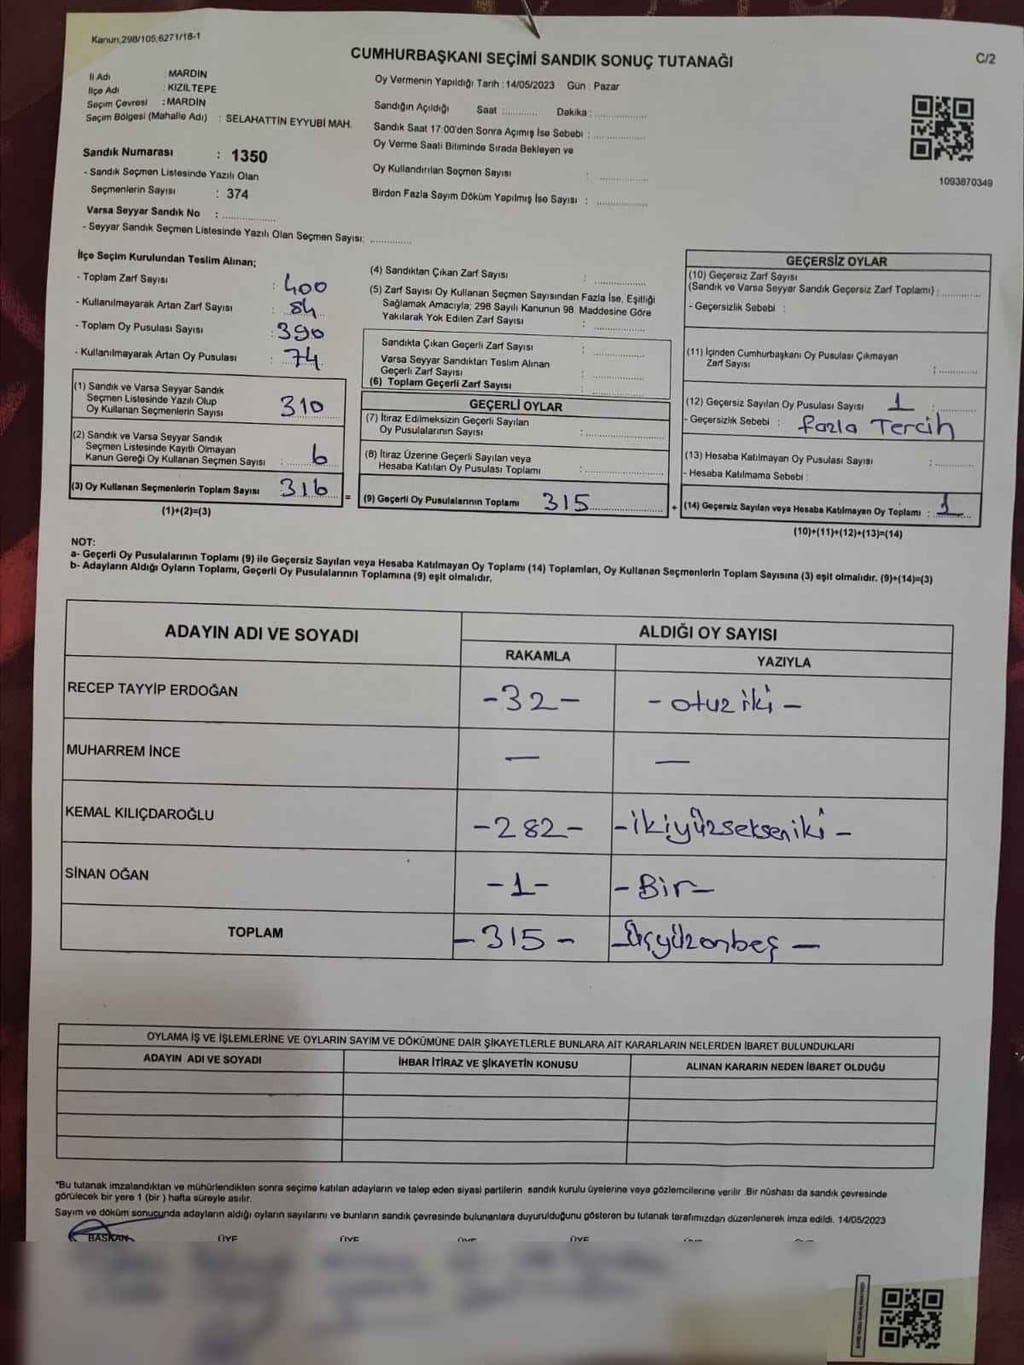 Kanun,298/105,6271/18-1
CUMHURBAŞKANI SEÇİMİ SANDIK SONUÇ TUTANAĞI
C/2
İl Adı : MARDİN
İlçe Adı : KIZILTEPE
Seçim Çevresi : MARDİN
Seçim Bölgesi (Mahalle Adı) : SELAHATTİN EYYUBİ MAH.
Oy Vermenin Yapıldığı Tarih : 14/05/2023 Gün : Pazar
Sandığın Açıldığı Saat :........... Dakika :................
Sandık Saat 17:00'den Sonra Açımış İse Sebebi : ................
Oy Verme Saati Bitiminde Sırada Bekleyen ve
Oy Kullandırılan Seçmen Sayısı : ................
Birden Fazla Sayım Döküm Yapılmış İse Sayısı : ................
1093870349
Sandık Numarası : 1350
- Sandık Seçmen Listesinde Yazılı Olan
Seçmenlerin Sayısı : 374
Varsa Seyyar Sandık No : ................
- Seyyar Sandık Seçmen Listesinde Yazılı Olan Seçmen Sayısı: ............
İlçe Seçim Kurulundan Teslim Alınan;
- Toplam Zarf Sayısı : 400
- Kullanılmayarak Artan Zarf Sayısı : 84
- Toplam Oy Pusulası Sayısı : 390
- Kullanılmayarak Artan Oy Pusulası : 74
(1) Sandık ve Varsa Seyyar Sandık
Seçmen Listesinde Yazılı Olup
Oy Kullanan Seçmenlerin Sayısı 310
(2) Sandık ve Varsa Seyyar Sandık
Seçmen Listesinde Kayıtlı Olmayan
Kanun Gereği Oy Kullanan Seçmen Sayısı : 6
(3) Oy Kullanan Seçmenlerin Toplam Sayısı 316 =
(1)+(2)=(3)
(4) Sandıktan Çıkan Zarf Sayısı : ................
(5) Zarf Sayısı Oy Kullanan Seçmen Sayısından Fazla İse, Eşitliği
Sağlamak Amacıyla; 298 Sayılı Kanunun 98. Maddesine Göre
Yakılarak Yok Edilen Zarf Sayısı : ................
Sandıkta Çıkan Geçerli Zarf Sayısı : ................
Varsa Seyyar Sandıktan Teslim Alınan
Geçerli Zarf Sayısı : ................
(6) Toplam Geçerli Zarf Sayısı : ................
GEÇERLİ OYLAR
(7) İtiraz Edilmeksizin Geçerli Sayılan
Oy Pusulalarının Sayısı : ................
(8) İtiraz Üzerine Geçerli Sayılan veya
Hesaba Katılan Oy Pusulası Toplamı : ................
(9) Geçerli Oy Pusulalarının Toplamı 315 +
GEÇERSİZ OYLAR
(10) Geçersiz Zarf Sayısı
(Sandık ve Varsa Seyyar Sandık Geçersiz Zarf Toplamı) : ............
- Geçersizlik Sebebi :
(11) İçinden Cumhurbaşkanı Oy Pusulası Çıkmayan
Zarf Sayısı : ............
(12) Geçersiz Sayılan Oy Pusulası Sayısı : 1
- Geçersizlik Sebebi : Fazla Tercih
(13) Hesaba Katılmayan Oy Pusulası Sayısı : ............
- Hesaba Katılmama Sebebi :
(14) Geçersiz Sayılan veya Hesaba Katılmayan Oy Toplamı : 1
(10)+(11)+(12)+(13)=(14)
NOT:
a- Geçerli Oy Pusulalarının Toplamı (9) ile Geçersiz Sayılan veya Hesaba Katılmayan Oy Toplamı (14) Toplamları, Oy Kullanan Seçmenlerin Toplam Sayısına (3) eşit olmalıdır. (9)+(14)=(3)
b- Adayların Aldığı Oyların Toplamı, Geçerli Oy Pusulalarının Toplamına (9) eşit olmalıdır.
ADAYIN ADI VE SOYADI
ALDIĞI OY SAYISI
RAKAMLA YAZIYLA
RECEP TAYYİP ERDOĞAN -32- - otuz iki -
MUHARREM İNCE — —
KEMAL KILIÇDAROĞLU -282- -ikiyüzsekseniki -
SİNAN OĞAN -1- - Bir-
TOPLAM -315 - -Üçyüzonbeş -
OYLAMA İŞ VE İŞLEMLERİNE VE OYLARIN SAYIM VE DÖKÜMÜNE DAİR ŞİKAYETLERLE BUNLARA AİT KARARLARIN NELERDEN İBARET BULUNDUKLARI
ADAYIN ADI VE SOYADI İHBAR İTİRAZ VE ŞİKAYETİN KONUSU ALINAN KARARIN NEDEN İBARET OLDUĞU
*Bu tutanak imzalandıktan ve mühürlendikten sonra seçime katılan adayların ve talep eden siyasi partilerin sandık kurulu üyelerine veya gözlemcilerine verilir. Bir nüshası da sandık çevresinde
görülecek bir yere 1 (bir) hafta süreyle asılır.
Sayım ve döküm sonuçunda adayların aldığı oyların sayılarını ve bunların sandık çevresinde bulunanlara duyurulduğunu gösteren bu tutanak tarafımızdan düzenlenerek imza edildi. 14/05/2023
BAŞKAN ÜYE ÜYE ÜYE ÜYE